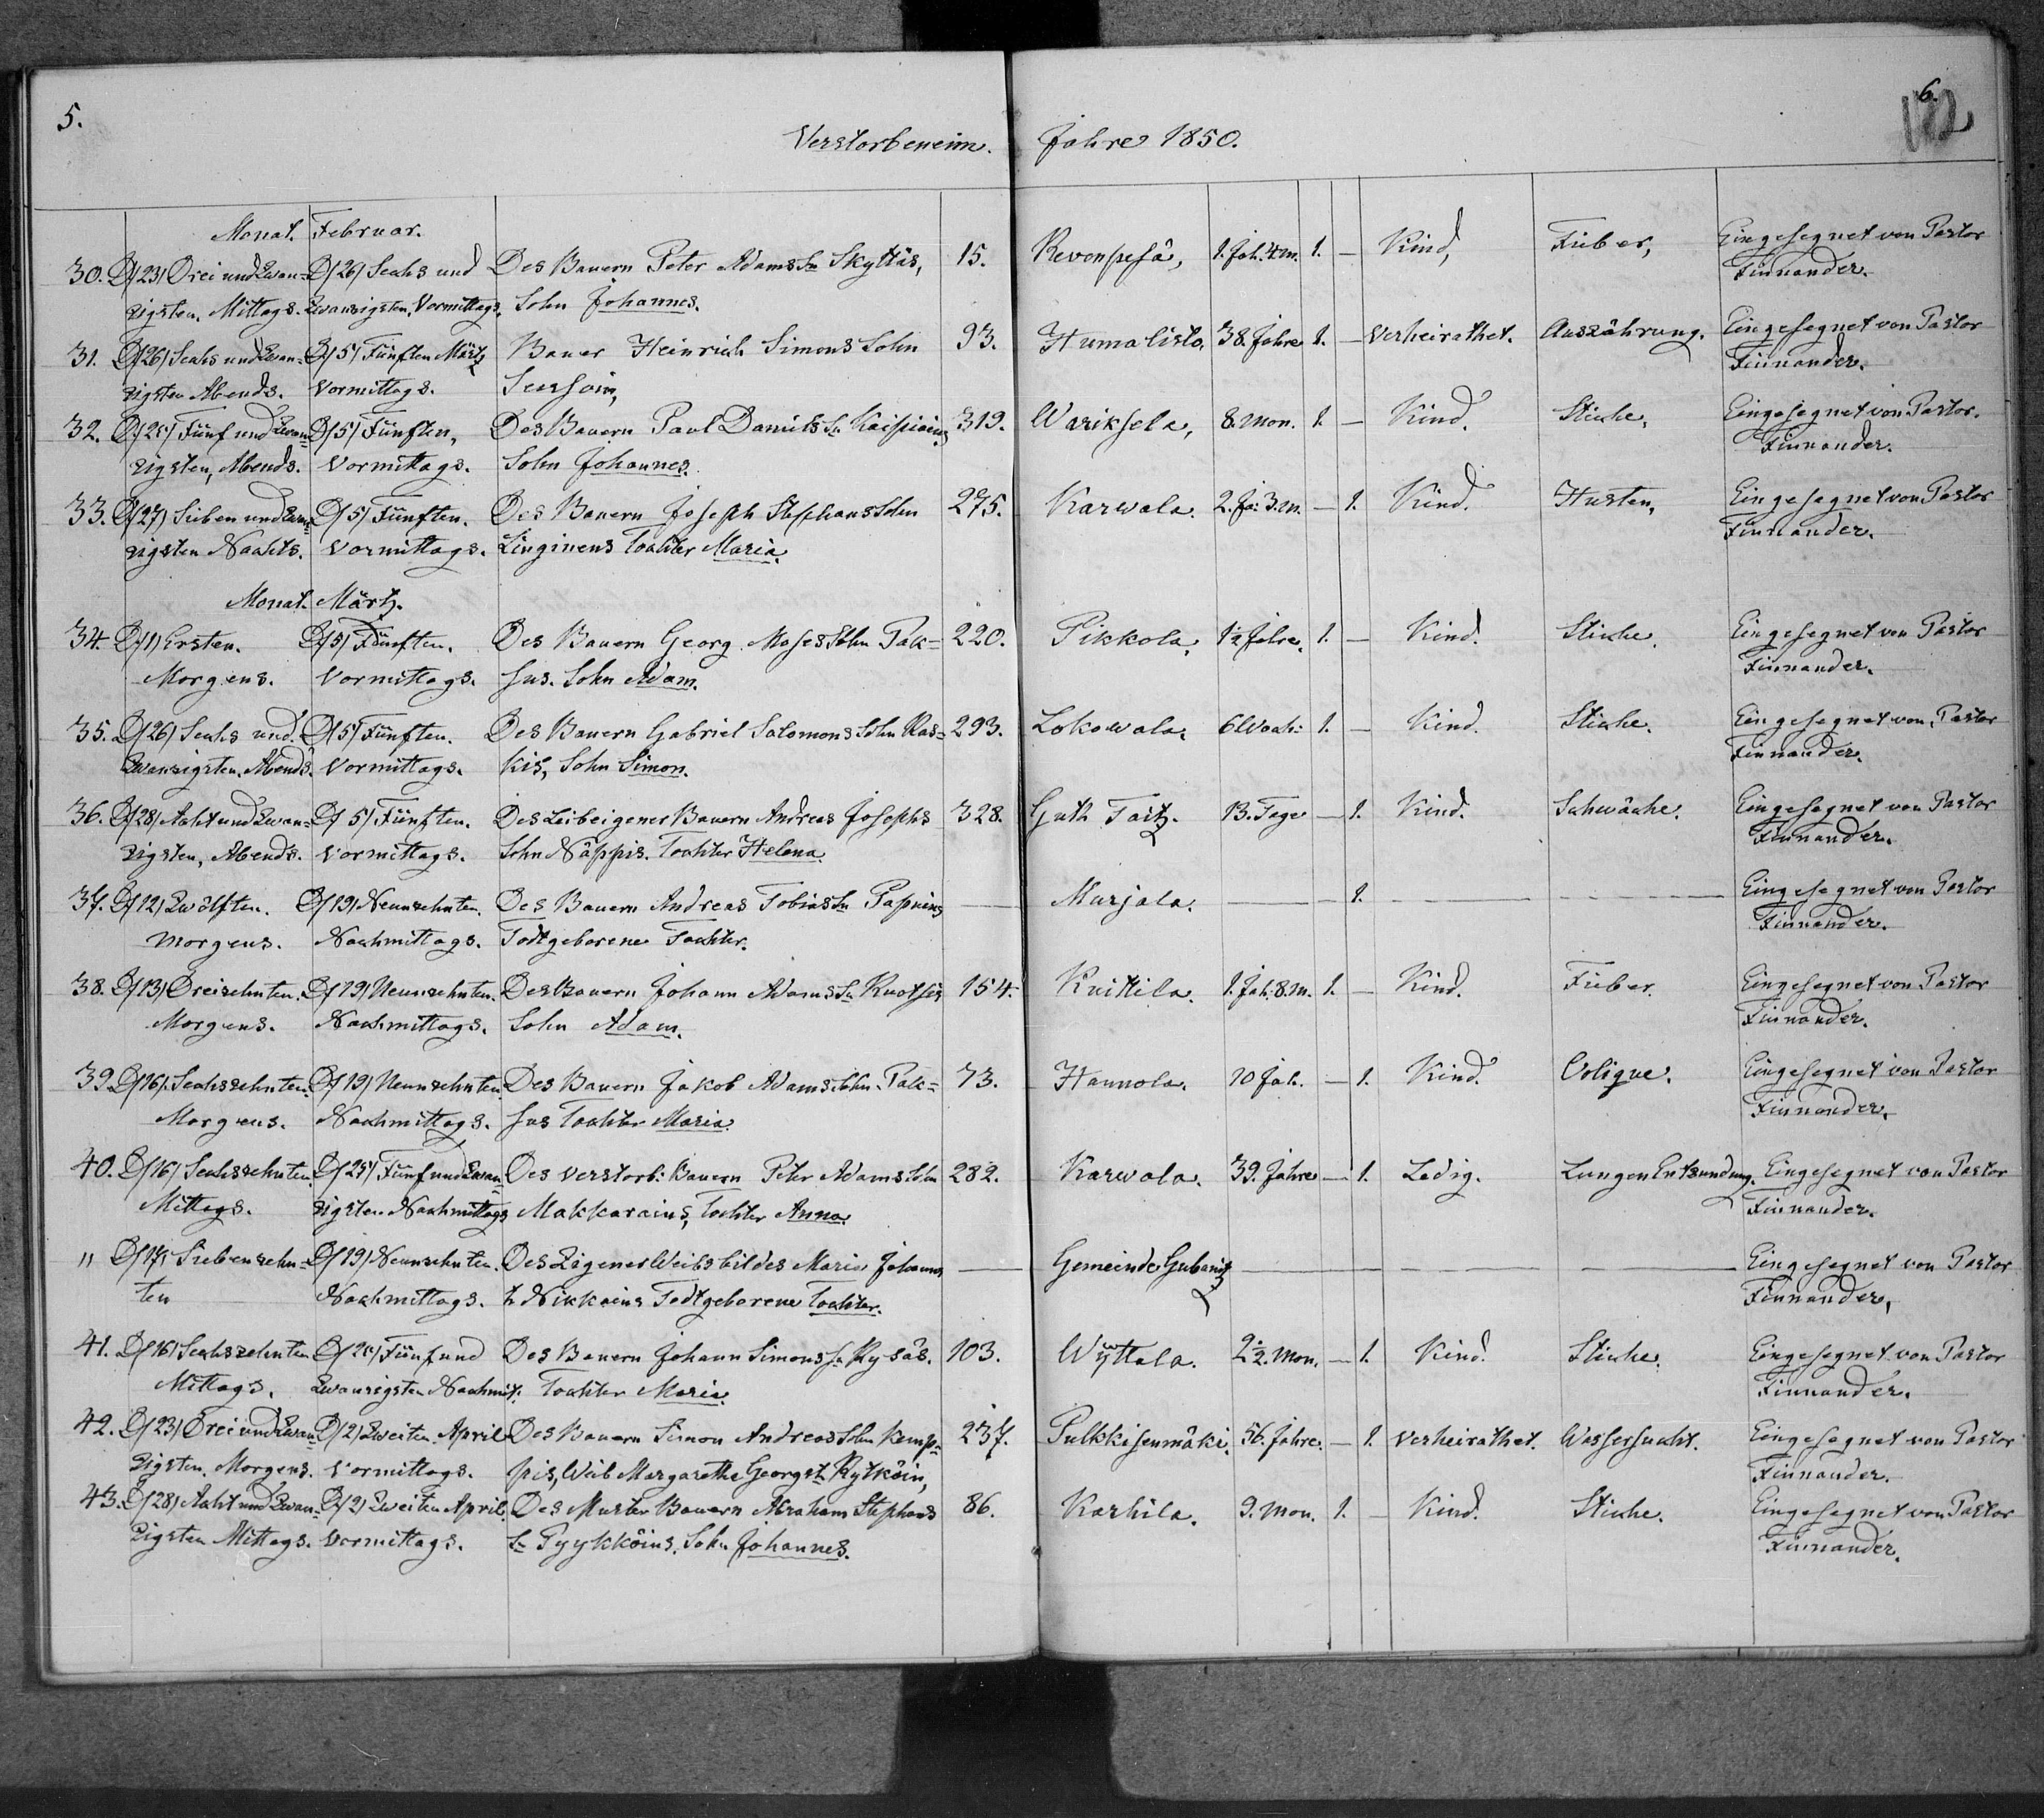 5.
6.
172
Verstorbene im. Jahre 1850.
Monat. Februar.
30. D/23/ Drei und Zwan= D/26/ Sechs und Des Bauern Peter Adams Sn Skyttäs, 15. Revonpesä, 1. Jah. 4. m. 1. — Kind, Fieber, Eingesegnet von Pastor
zigsten. Mittags. Zwanzigsten. Vormittags. Sohn Johannes. Finnander.
31. D/26/ Sechs und Zwan= D/5/ Fünften Märtz Bauer Heinrich Simons Sohn 93. Humalisto. 38. Jahre 1. — Verheirathet. Auszährung. Eingesegnet von Pastor
zigsten Abends. Vormittags. Finnander.
32. D/25/ Fünf und Zwan= D/5/ Fünften, Des Bauern Paul Daniels Sn Kaipiains 319. Wariksela, 8. Mon. 1. — Kind. Stiche, Eingesegnet von Pastor.
zigsten, Abends. Vormittags. Sohn Johannes. Finnander.
33. D/27/ Sieben und Zwan= D/5/ Fünften. Des Bauern Joseph Stephans Sohn 275. Karwala. 2. Ja: 3. m. — 1. Kind. Husten, Eingesegnet von Pastor
zigsten Nachts. Vormittags. Linginens Tochter Maria. Finnander.
Monat. Märtz.
34. D/1/ Ersten. D/5/ Fünften. Des Bauern Georg Moses Sohn Pak= 220. Pikkola, 1½ Jahre, 1. — Kind. Stiche. Eingesegnet von Pastor
Morgens. Vormittags. sus. Sohn Adam. Finnander.
35. D/26/ Sechs und D/5/ Fünften. Des Bauern Gabriel Salomons Sohn Ras= 293. Lokowala, 6 Woch: 1. — Kind. Stiche. Eingesegnet von Pastor
Zwanzigsten. Abends. Vormittags. kis, Sohn Simon. Finnander.
36. D/28/ Acht und Zwan= D/5/ Fünften. Des Leibeigener Bauern Andreas Josephs 328. Guth Taitz. 13. Tage — 1. Kind. Schwäche. Eingesegnet von Pastor
zigsten, Abends. Vormittags. Sohn Näppis. Tochter Helena. Finnander.
37. D/12/ Zwölften. D/19/ Neunzehnten. Des Bauern Andreas Tobias Sn Papnins — Murjala. — — 1. — — Eingesegnet von Pastor
Morgens. Nachmittags. Todtgeborene Tochter. Finnander.
38. D/13/ Dreizehnten. D/19/ Neunzehnten. Des Bauern Johann Adams Sn Ruotsis 154. Kuitila. 1. Jah: 8. m. 1. — Kind. Fieber. Eingesegnet von Pastor
Morgens. Nachmittags. Sohn Adam. Finnander.
39. D/16/ Sechszehnten. D/19/ Neunzehnten. Des Bauern Jakob Adams Sohn. Pak= 73. Hannola. 10 Jah. — 1. Kind. Colique. Eingesegnet von Pastor
Morgens. Nachmittags. sus Tochter Maria. Finnander.
40. D/16/ Sechszehnten. D/25/ Fünf und Zwan= Des verstorb: Bauern Peter Adams Sohn 282. Karwala. 39. Jahre — 1. Ledig. Lungen Entzündung. Eingesegnet von Pastor
Mittags. zigsten Nachmittags Makkarains, Tochter Anna. Finnander.
" D/17/ Siebenzehn= D/19/ Neunzehnten. Des Zigener Weibsbildes Maria Johanns — Gemeinde Gubanitz — — — — Eingesegnet von Pastor
ten Nachmittags. t. Nikkains Todtgeborene Tochter. Finnander,
41. D/16/ Sechszehnten D/25/ Fünf und Des Bauern Johann Simons Sn Rysäs. 103. Wyttala. 2½. Mon. — 1. Kind. Stiche. Eingesegnet von Pastor
Mittags. Zwanzigsten Nachmit. Tochter Maria. Finnander.
42. D/23/ Drei und Zwan= D/2/ Zweiten April Des Bauern Simon Andreas Sohn Kemp= 237. Pulkkisenmäki. 56. Jahre. — 1. Verheirathet. Wassersucht. Eingesegnet von Pastor
zigsten. Morgens. Vormittags. pis, Weib Margaretha Georgs t. Rytköin, Finnander.
43. D/28/ Acht und Zwan= D/2/ Zweiten April. Des Muster Bauern Abraham Stephans 86. Karhila. 9. Mon. 1. — Kind. Stiche. Eingesegnet von Pastor
zigsten Mittags. Vormittags. Sn Pyykköins, Sohn Johannes. Finnander.